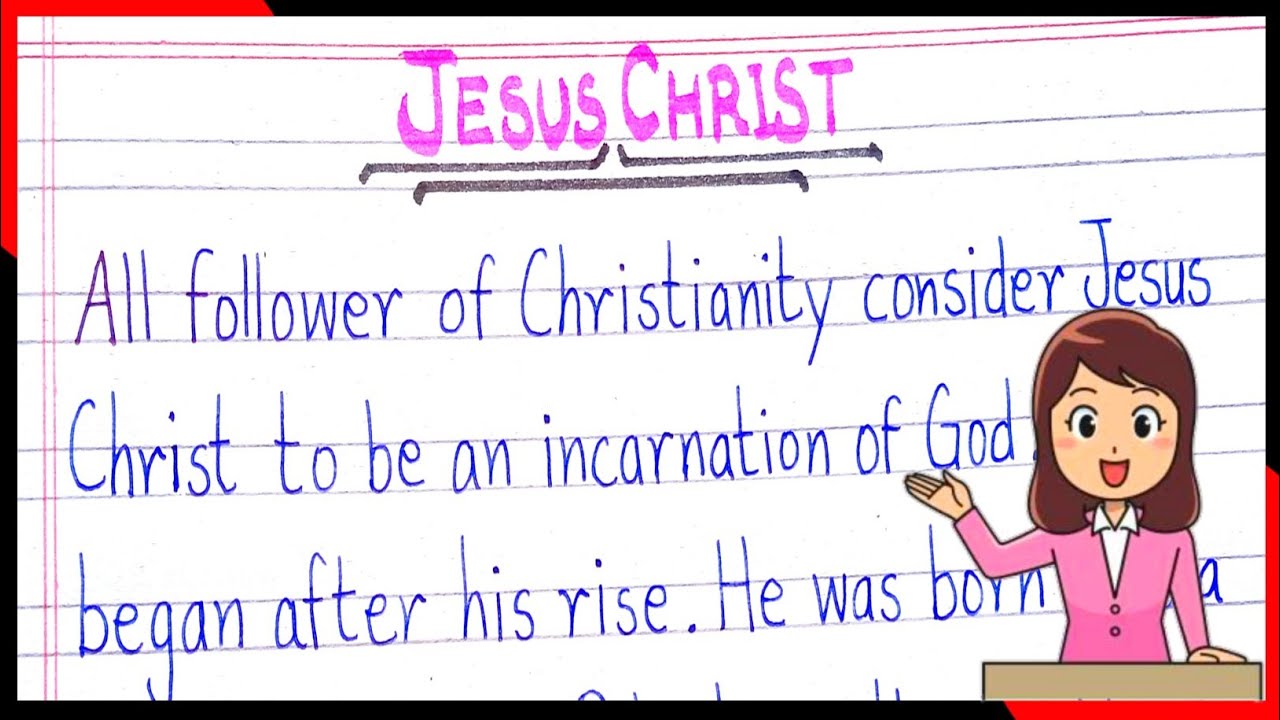 JESUS CHRIST
All follower of Christianity consider Jesus
Christ to be an incarnation of God.
began after his rise. He was born a